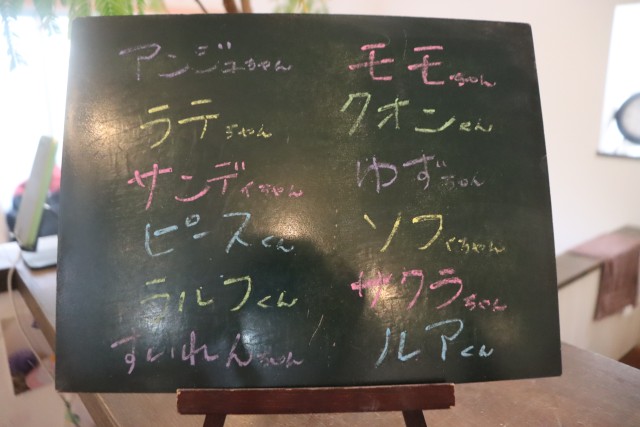 アンジュちゃん
ラテちゃん
サンディちゃん
ピースくん
ラルフくん
すいれんちゃん
モモちゃん
クオンくん
ゆずちゃん
ソフィちゃん
サクラちゃん
ルアくん